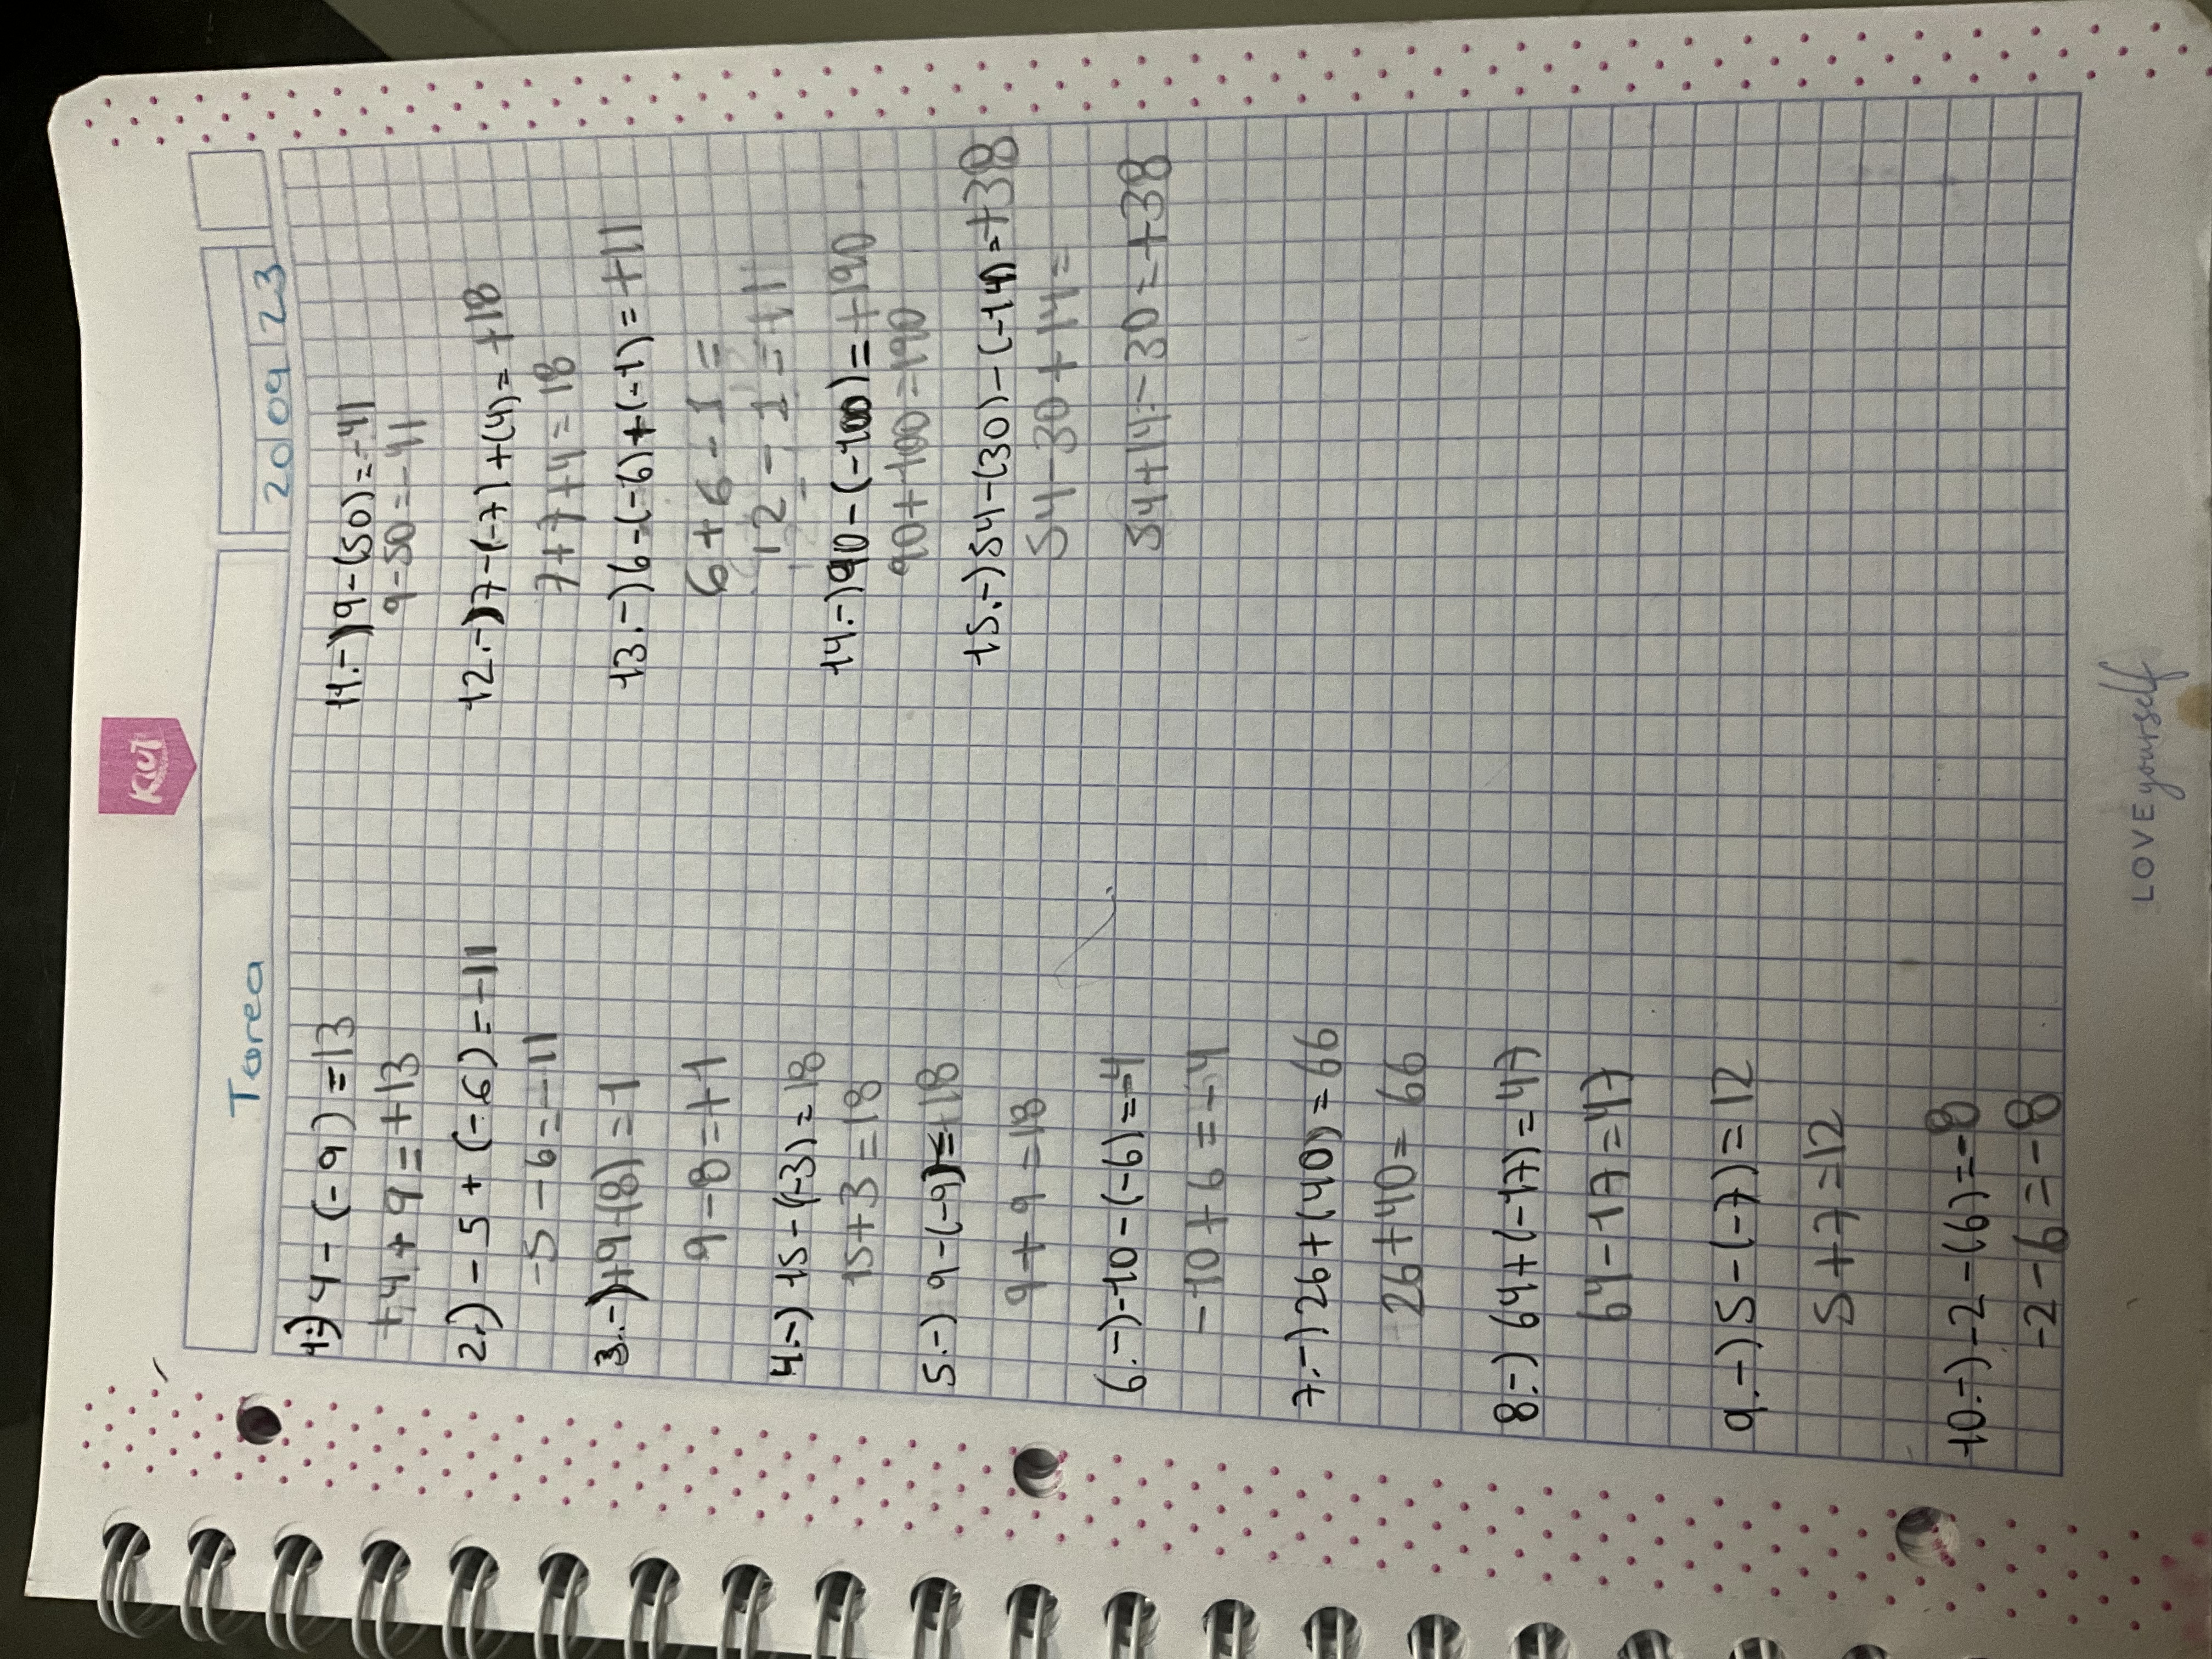 KIUT
Tarea
20 09 23
1.-) 4 - (-9) = 13
+4 + 9 = +13
2.-) -5 + (-6) = -11
-5 - 6 = -11
3.-) +9-(8) = 1
9 - 8 = +1
4.-) 15 - (-3) = 18
15 + 3 = 18
5.-) 9 - (-9) = 18
9 + 9 = 18
6.-) -10 - (-6) = -4
-10 + 6 = -4
7.-) 26 + (40) = 66
26 + 40 = 66
8.-) 64 + (-17) = 47
64 - 17 = 47
9.-) 5 - (-7) = 12
5 + 7 = 12
10.-) -2 - (6) = -8
-2 - 6 = -8
11.-) 9 - (50) = -41
9 - 50 = -41
12.-) 7 - (-7) + (4) = +18
7 + 7 + 4 = 18
13.-) 6 - (-6) + (-1) = +11
6 + 6 - 1 =
12 - 1 = +11
14.-) 90 - (-100) = +190
90 + 100 = 190
15.-) 54 - (30) - (-14) = +38
54 - 30 + 14 =
54 + 14 - 30 = +38
LOVE yourself